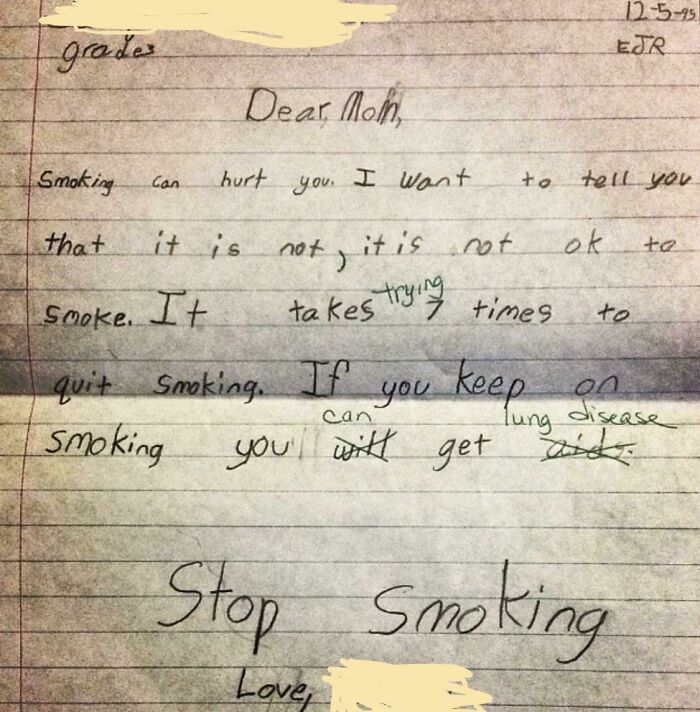 12-5-95
grades EJR
Dear Mom,
Smoking can hurt you. I want to tell you
that it is not, it is not ok to
trying
smoke. It takes 7 times to
quit smoking. If you keep on
can lung disease
smoking you will get aids.
Stop Smoking
Love,